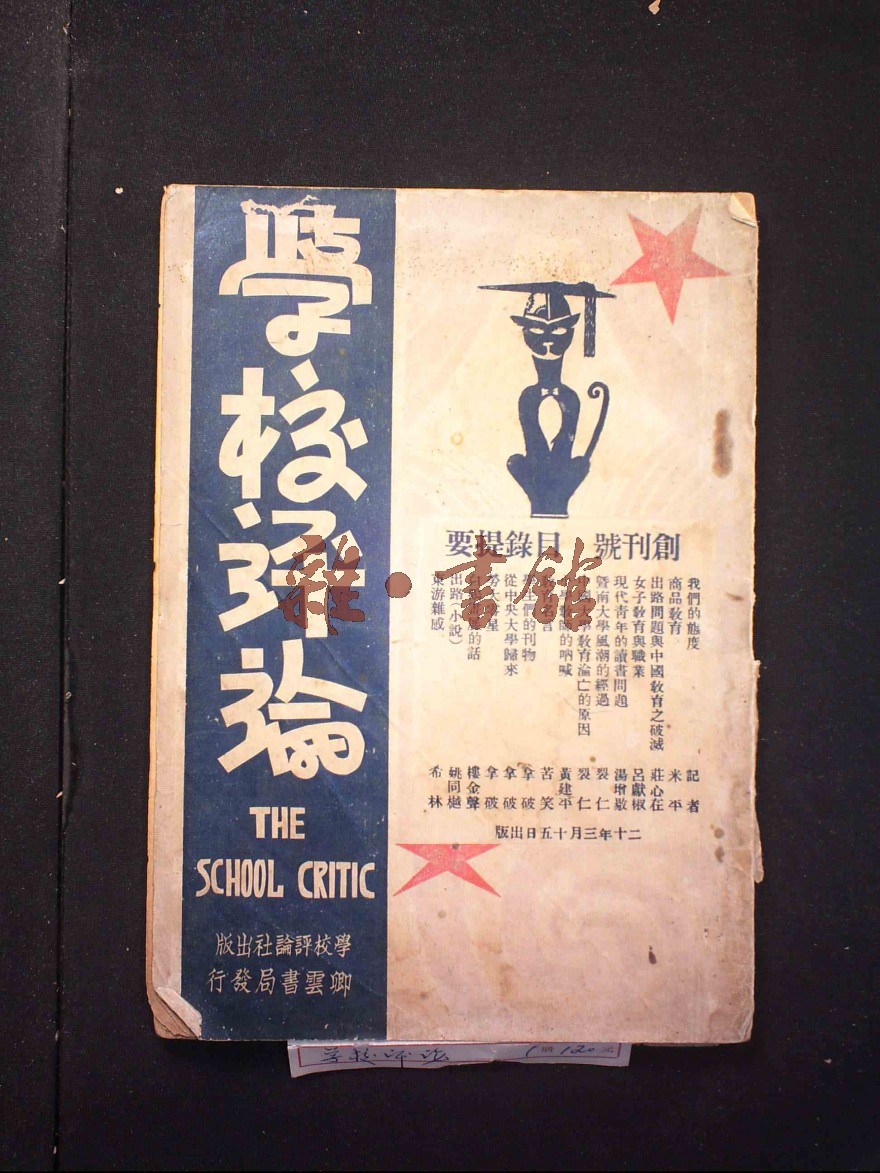 學校評論
THE
SCHOOL CRITIC
學校評論社出版
卿雲書局發行
創刊號 目錄提要
我們的態度 記者
商品教育 米平
出路問題與中國教育之破滅 莊心在
女子教育與職業 呂獻椒
現代青年的讀書問題 湯增敭
暨南大學風潮的經過 裂仁
教育淪亡的原因 裂仁
的吶喊 黃建平
苦笑
們的刊物 拿破
從中央大學歸來 拿破
拿破
的話 樓金聲
出路(小說) 姚同樾
東游雜感 希林
二十年三月十五日出版
雜·書館